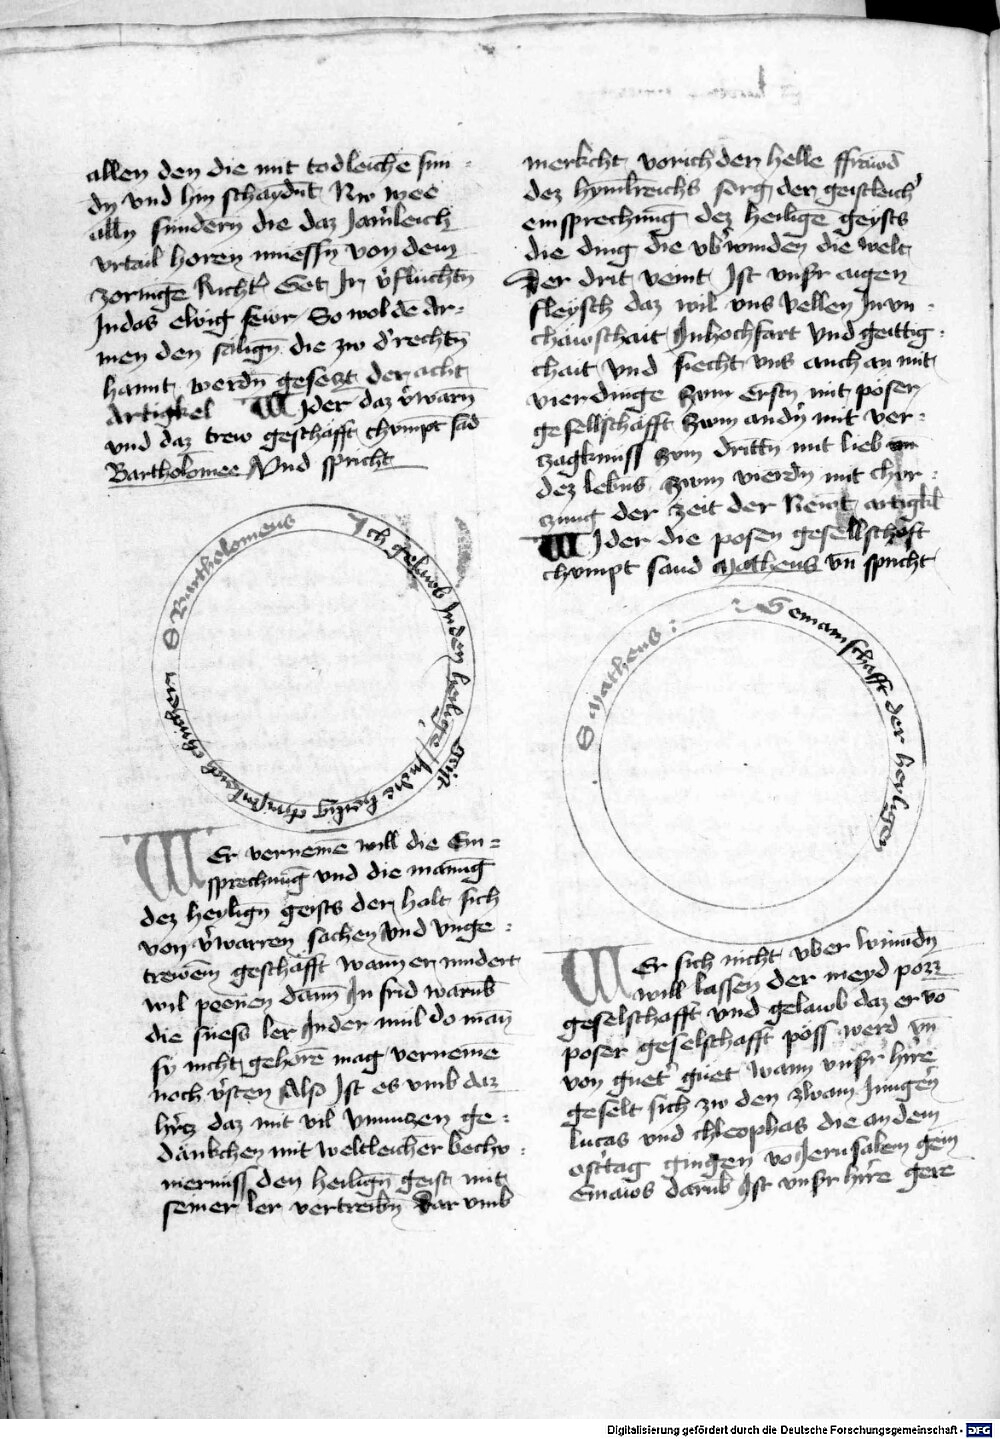 allen den die mit todleichē sun-
dn vnd hin schaydnt Nw wee
alln sundern die daz Jam̄leich
vrtail horen muessn von dem
zornige Richt̕ Got Jr v̕fluchtn
Jndas ewig fewr So wol de Ar-
men den salign die zw d̕ rechtn
hannt werdn gesetzt der acht
Artigkel Wider daz v̕warn
vnd daz trew geschäfft chvmpt sād
Bartholomee Vnd spricht
S Bartholomeus Ych gelawb Jn den heilige geist
Jn die heilig
WEr vernemē will die Ein-
sprechnug vnd die manūg
dez heylign geists der halt sich
von v̕warren sachen vnd vnge-
trewem geschäfft wann er nindert
wil peenen dann Jn frid warūb
die suess ler Jnder mül do man
sy nicht gehorē mag vernemē
noch v̕sten Also Jst es vmb daz
hr̕cz daz mit vil vnnutzen ge-
dänkchen mit weltleicher bechv-
mernüss den heilign geist mit
seiner ler vertreibn Dar vmb
merkcht vorich der helle ffrawd
dez hymlreichs sorg der geistleich̕
einsprechnūg dez heiligē geysts
die ding die vb̕winden die welt
Der drit veint Jst vnsr aigen
fleysch daz wil vns vellen Jn vn-
chawschait Jn hochfart vnd geittig-
chait vnd siecht vns auch an mit
vierdinge zwm ersten mit poser
gesellschafft zwm andn̕ mit ver-
zagknuss zvm drittn mit lieb
dez lebns zwm vierdn mit chor-
czung der zeit der Newnt artigkl
Wider die posen gesellschoft
chvmpt sand Matheus vn̄ spricht
S Matheus: Gemainschafft der heyligen
WEr sich nicht vber winndn
will lassen der meyd pozz
geselschafft vnd gelawb daz er vō
poser geselschafft poss werd vn̄
von guet̕ guet wann vnsr hr̕re
geselt sich zw den zwain Jungern̄
lucas vnd chleophas die an dem
osr̕tag gingen vō Jerusalem gein
Emaws darūb Jst vnsr hr̕re gere
Digitalisierung gefördert durch die Deutsche Forschungsgemeinschaft - DFG